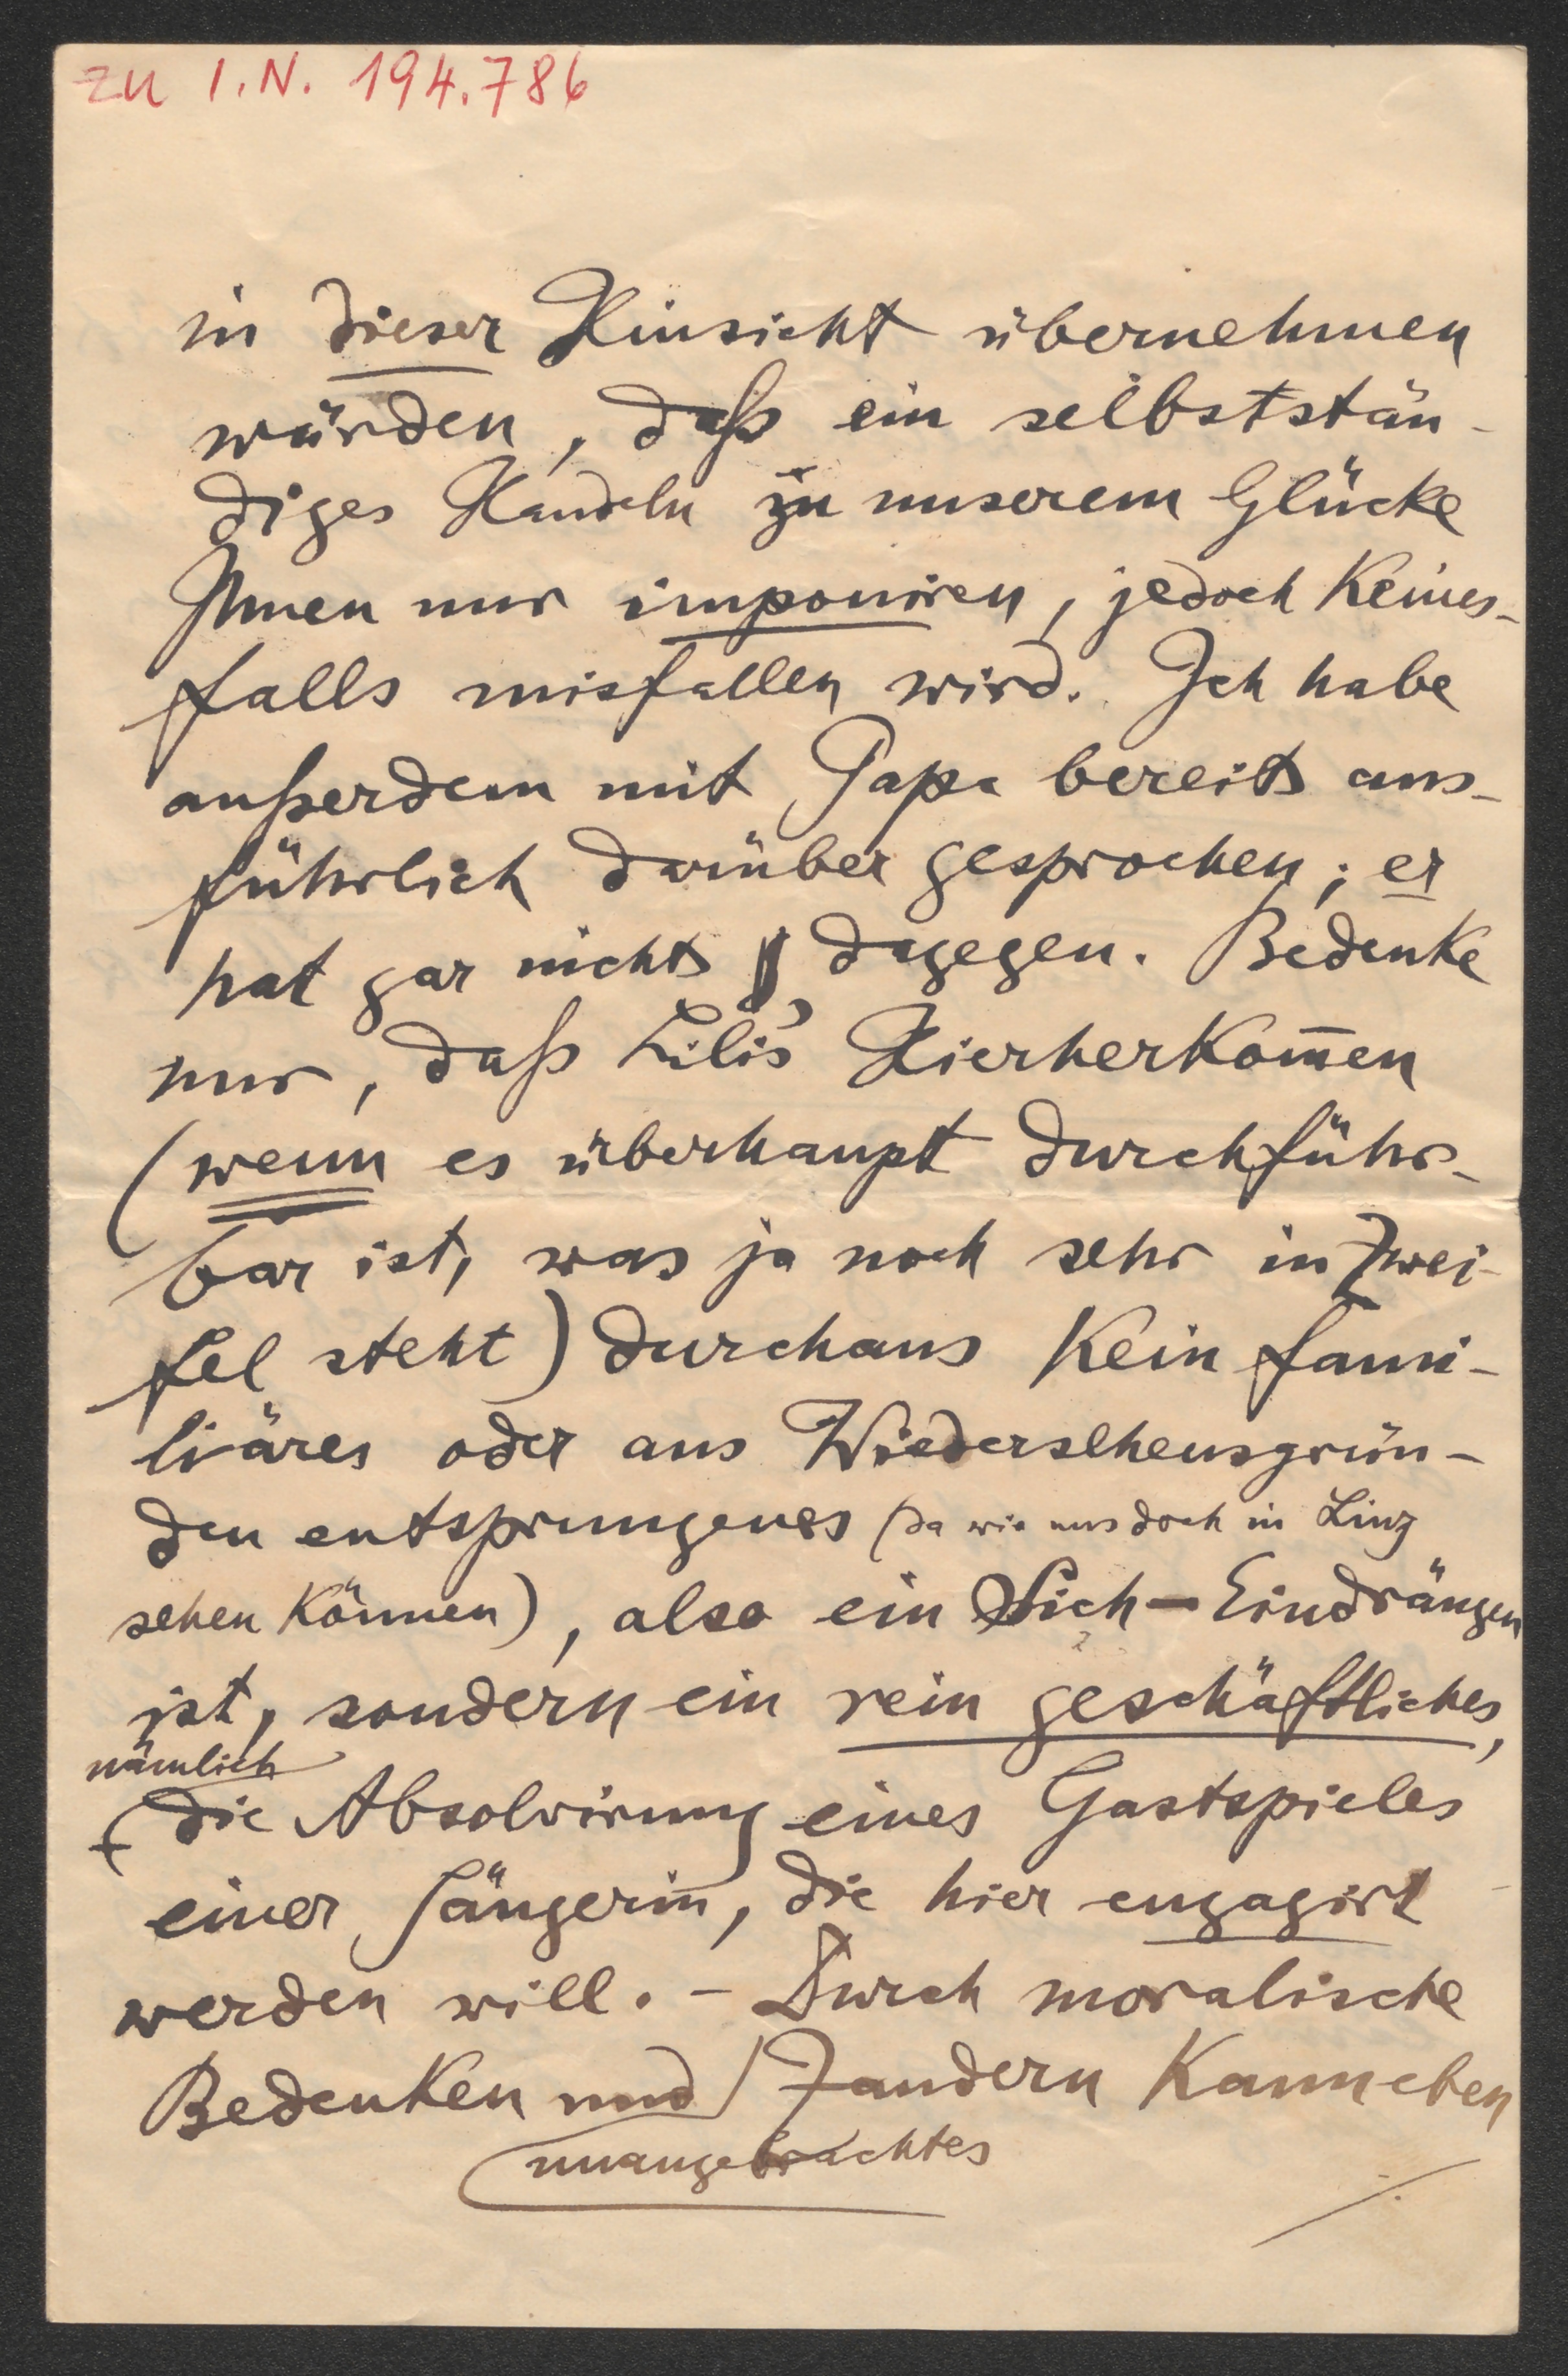 zu I.N. 194.786
in dieser Hinsicht übernehmen
würden, daß ein selbststän-
diges Handeln zu unserem Glücke
Ihnen nur imponiren, jedoch keines-
falls misfallen wird. Ich habe
außerdem mit Papa bereits aus-
führlich darüber gesprochen; er
hat gar nichts dagegen. Bedenke
nur, daß Lili's Hierherkom̅en
(wenn es überhaupt durchführ-
bar ist, was ja noch sehr in Zwei-
fel steht) durchaus kein fami-
liäres oder aus Wiedersehensgrün-
den entsprungenes (da wir uns doch in Linz
sehen können), also ein Sich-Eindrängen
ist, sondern ein rein geschäftliches,
nämlich
(die Absolvirung eines Gastspieles
einer Sängerin̅, die hier engagirt
werden will. - Durch moralische
Bedenken und Zaudern kann eben
unangebrachtes
./.